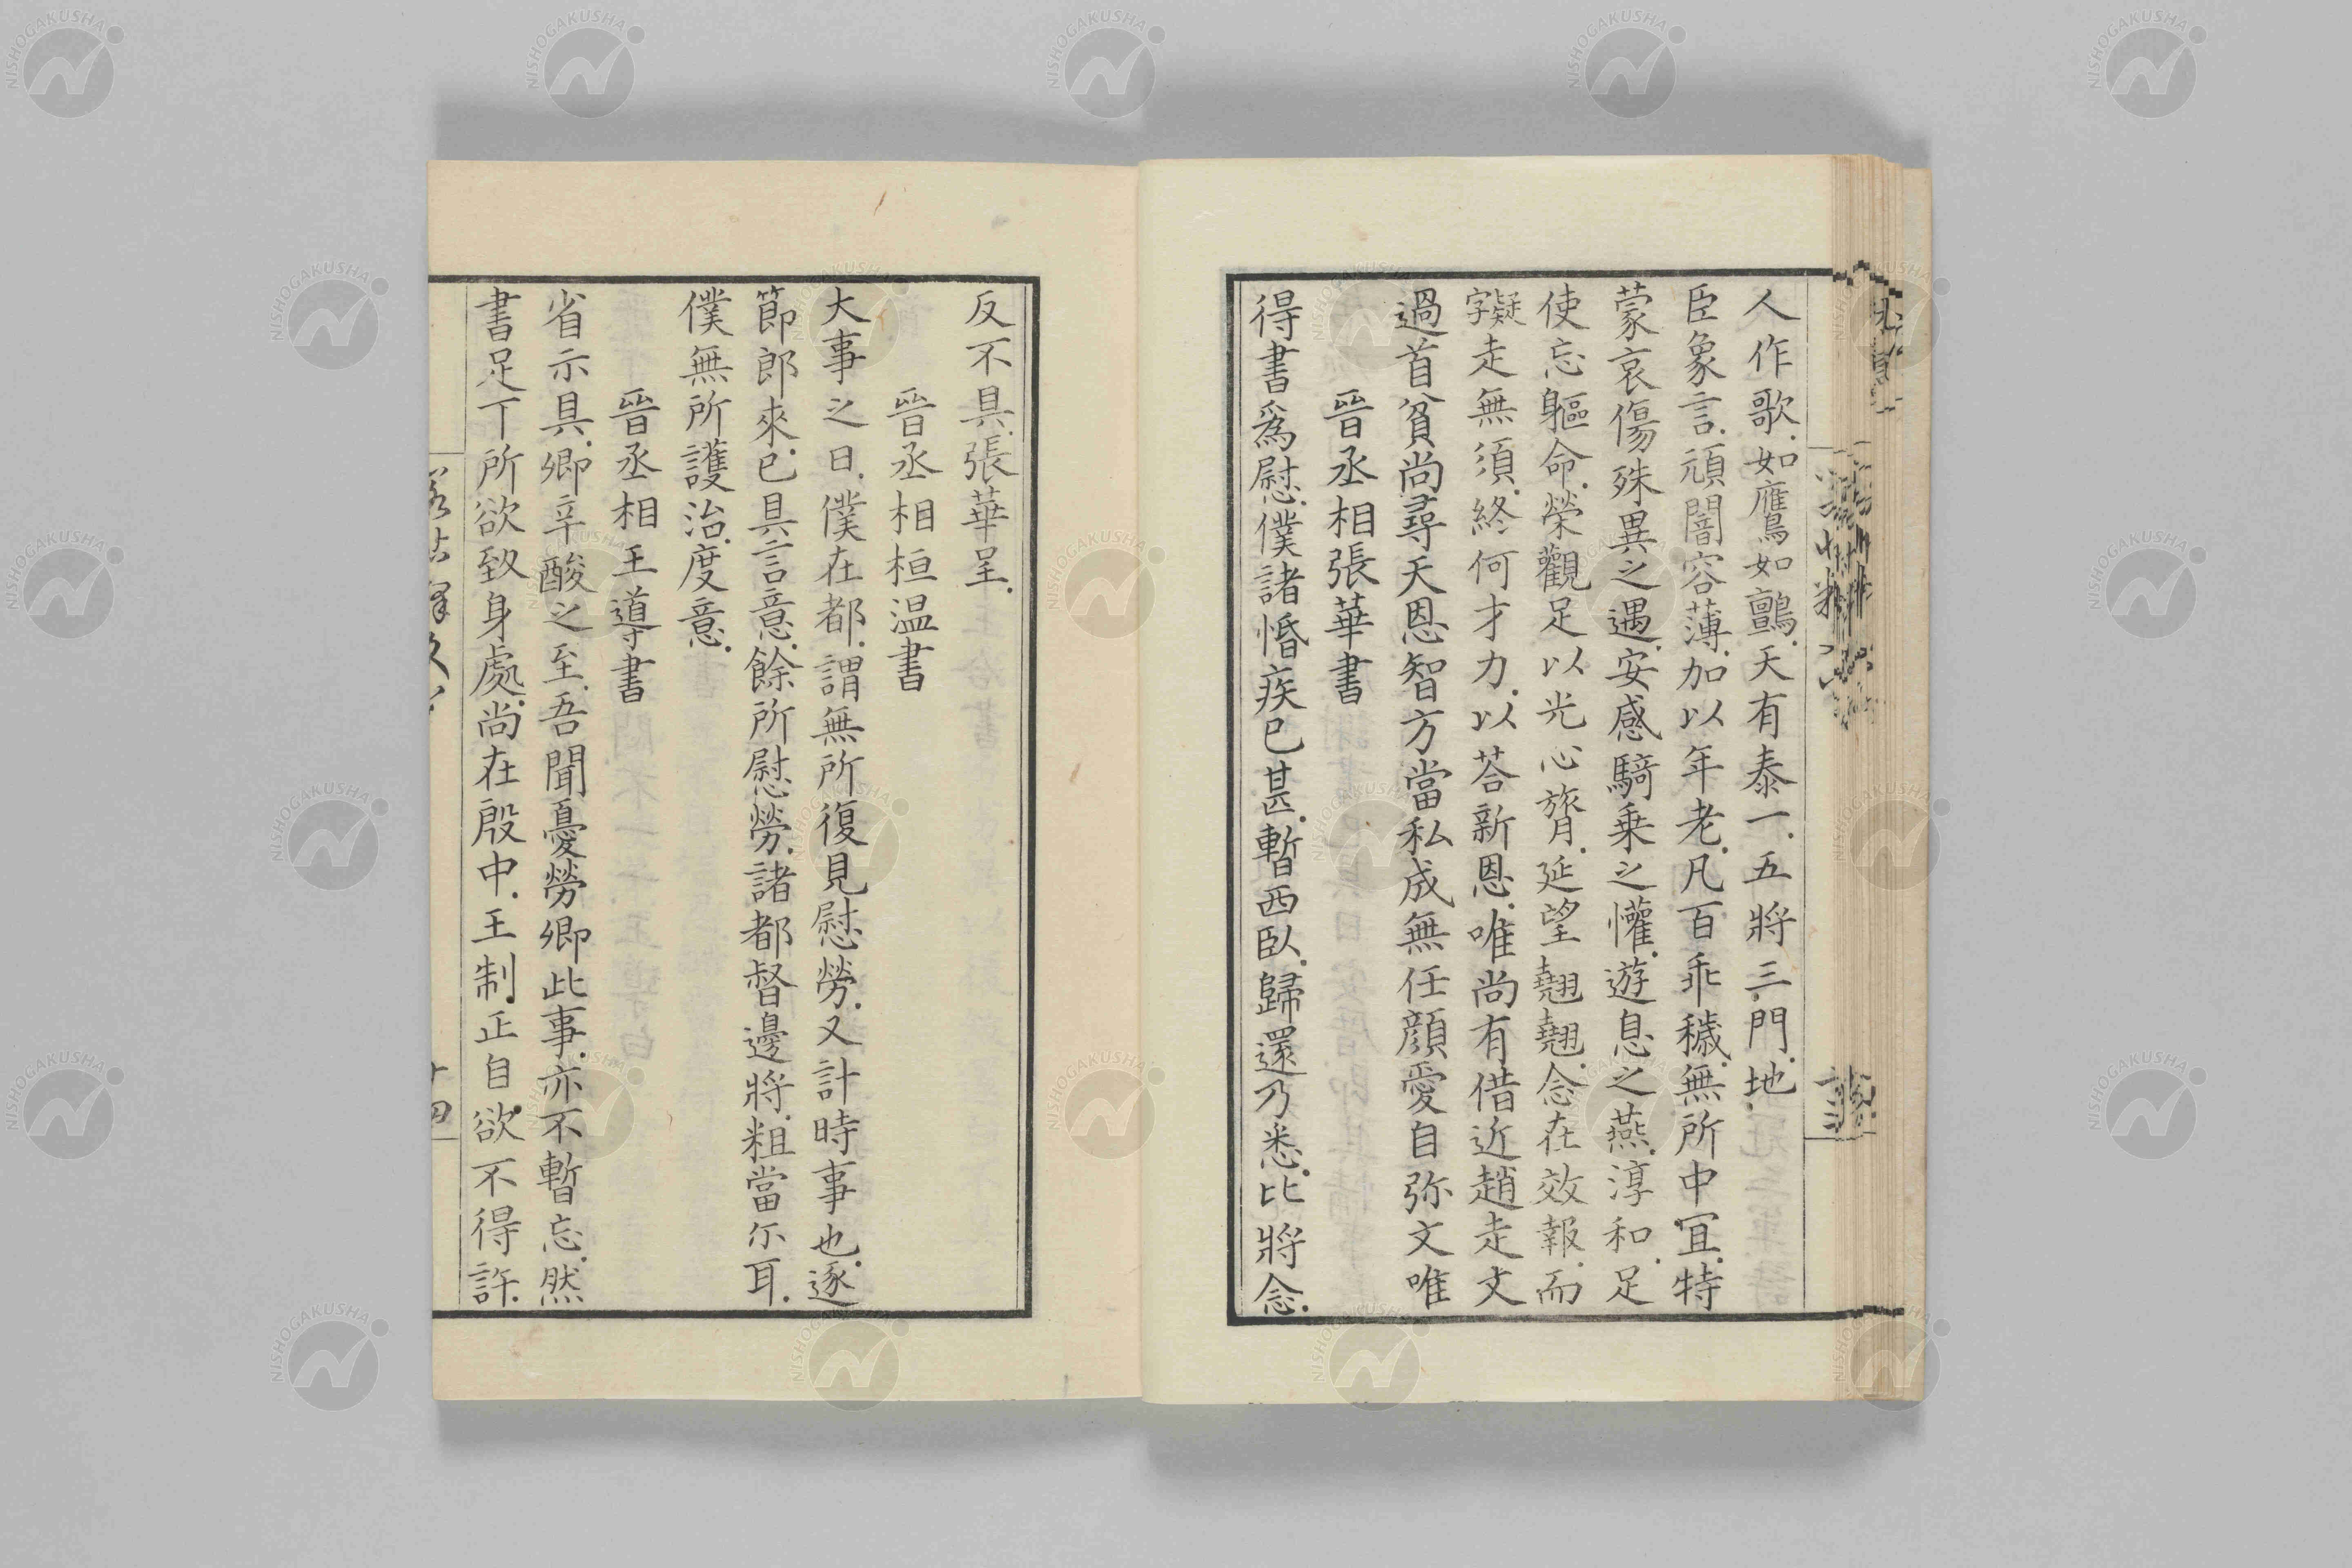 人作歌.如鷹如鸇.天有泰一.五將三門.地.
臣象言.頑闇容薄.加以年老.凡百乖穢.無所中冝.特
蒙哀傷殊異之遇.安感騎乗之懽.遊息之燕.淳和.足
使忘軀命.榮觀足以光心膂.延望翹翹.念在效報.而
疑字走無須.終何才力.以荅新恩.唯尚有借近趙走文
過首貧尚尋天恩智方當私成無任顔愛自弥文唯
晉丞相張華書
得書爲慰.僕諸惛疾已甚.暫西臥.歸還乃悉.比將念.
反不具.張華呈.
晉丞相桓温書
大事之日.僕在都.謂無所復見慰勞.又計時事也.逐
節郎來.已具言意.餘所慰勞.諸都督邊將.粗當尓耳.
僕無所護治.度意.
晉丞相王導書
省示具.卿辛酸之至.吾聞憂勞卿此事.亦不暫忘.然
書足下所欲致身處.尚在殷中.王制.正自欲不得許.
十四
NISHOGAKUSHA